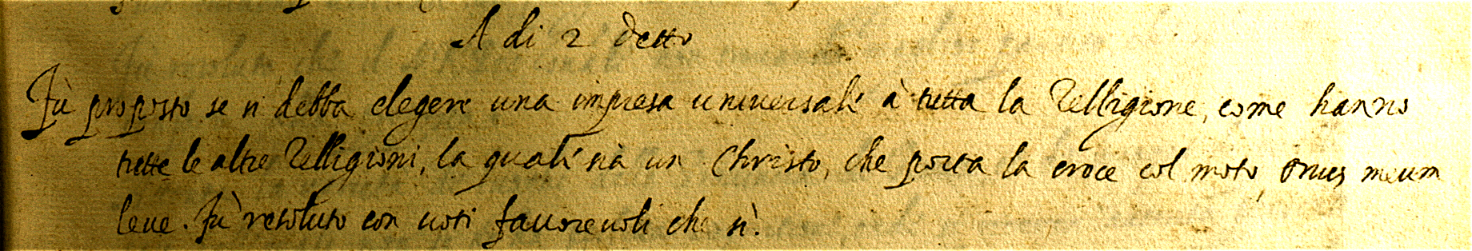 A di 2 detto
Fù proposto se si debba elegere una impresa universale à tutta la Relligione, come hanno
tutte le altre Relligioni, la quale sia un Christo, che porta la croce col moto, onus meum
leue. Fù resoluto con uoti fauoreuoli che sì.